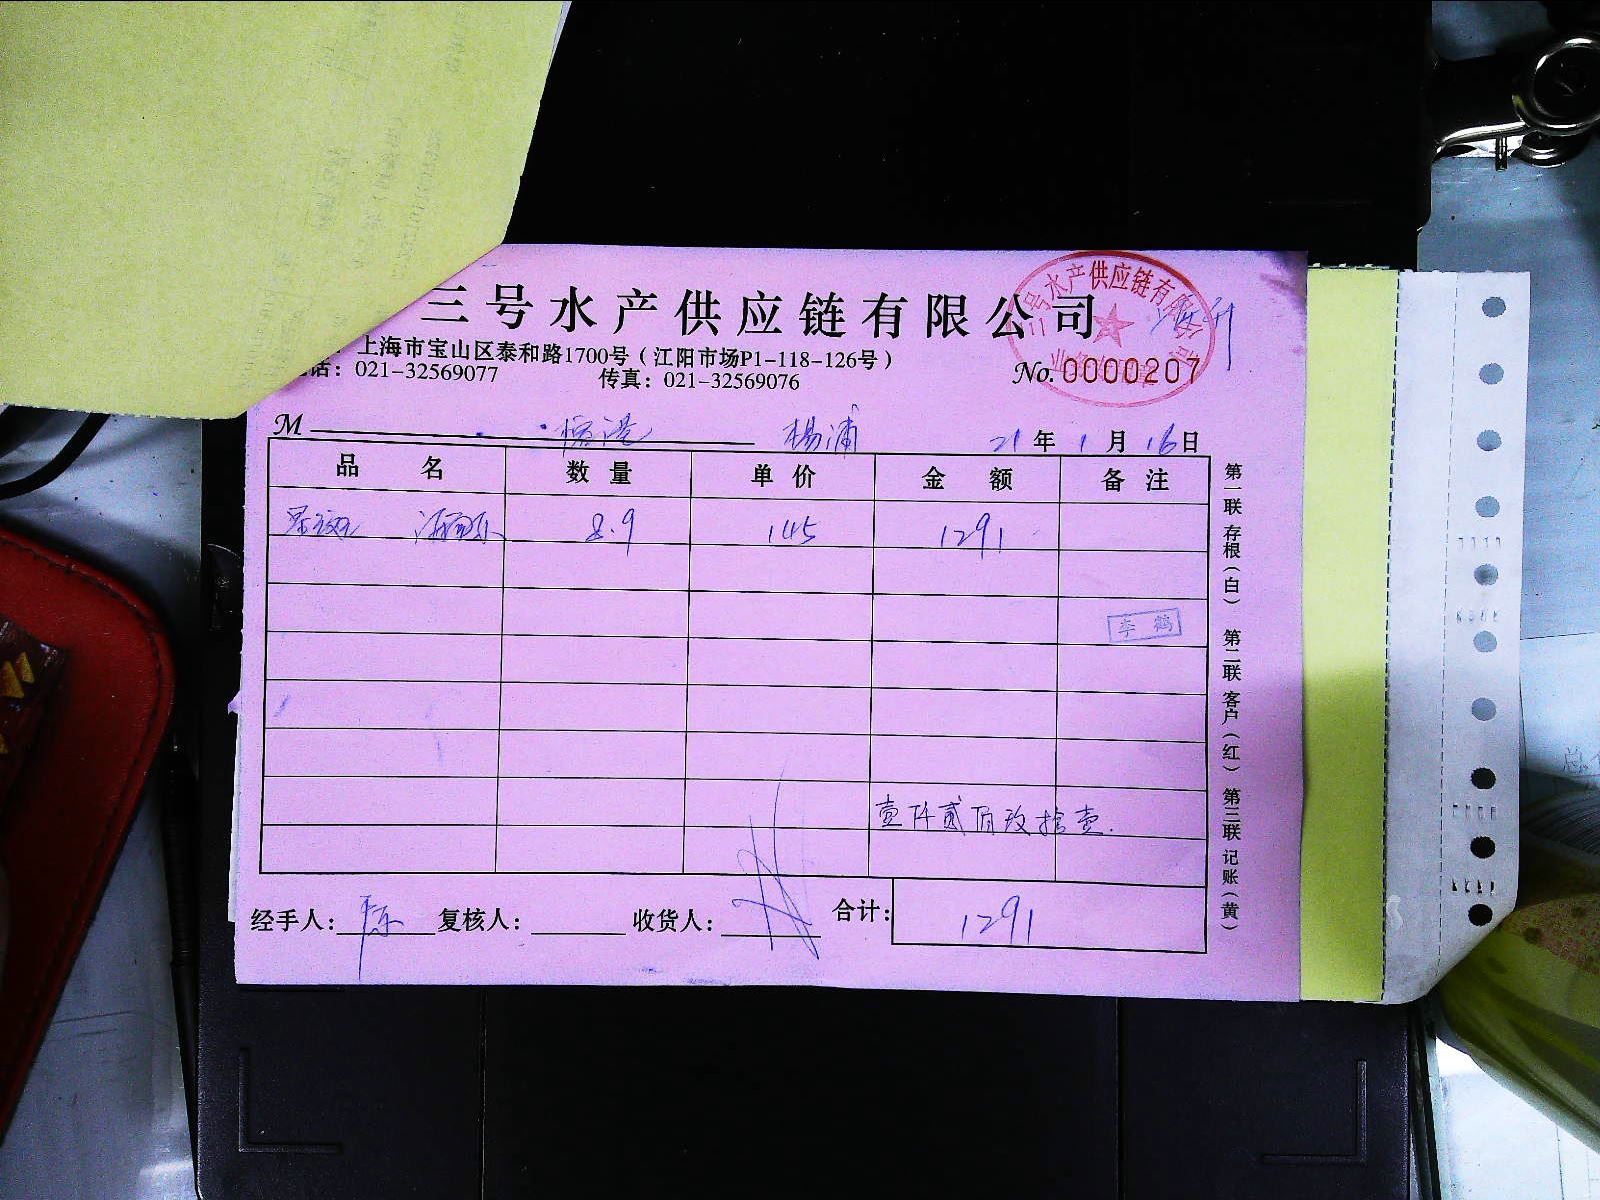 三号水产供应链有限公司
上海市宝山区泰和路1700号（江阳市场P1-118-126号）
话：021-32569077 传真：021-32569076
No. 0000207
号水产供应链有限公
M 杨浦 21年1月16日
品名 数量 单价 金额 备注
8.9 145 1291
李鹤
壹仟贰佰玖拾壹.
经手人： 复核人： 收货人： 合计： 1291
第一联 存根（白） 第二联 客户（红） 第三联 记账（黄）